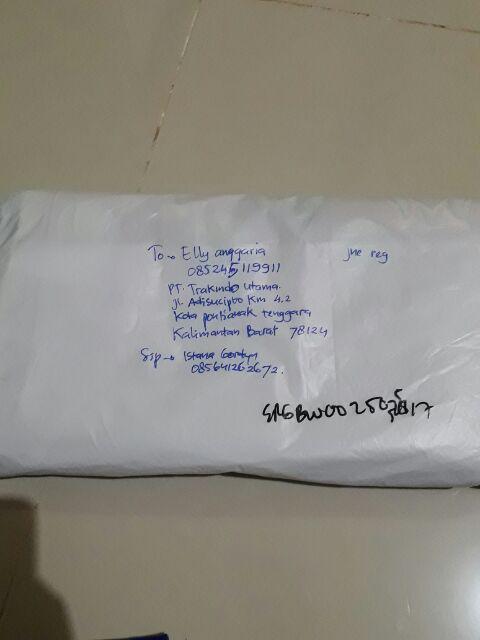 To → Elly anggaria
jne reg
085245119911
PT. Trakindo Utama.
Jl. Adisucipto Km 4.2
Kota pontianak tenggara
Kalimantan Barat 78124
→ Istana
085641262672.